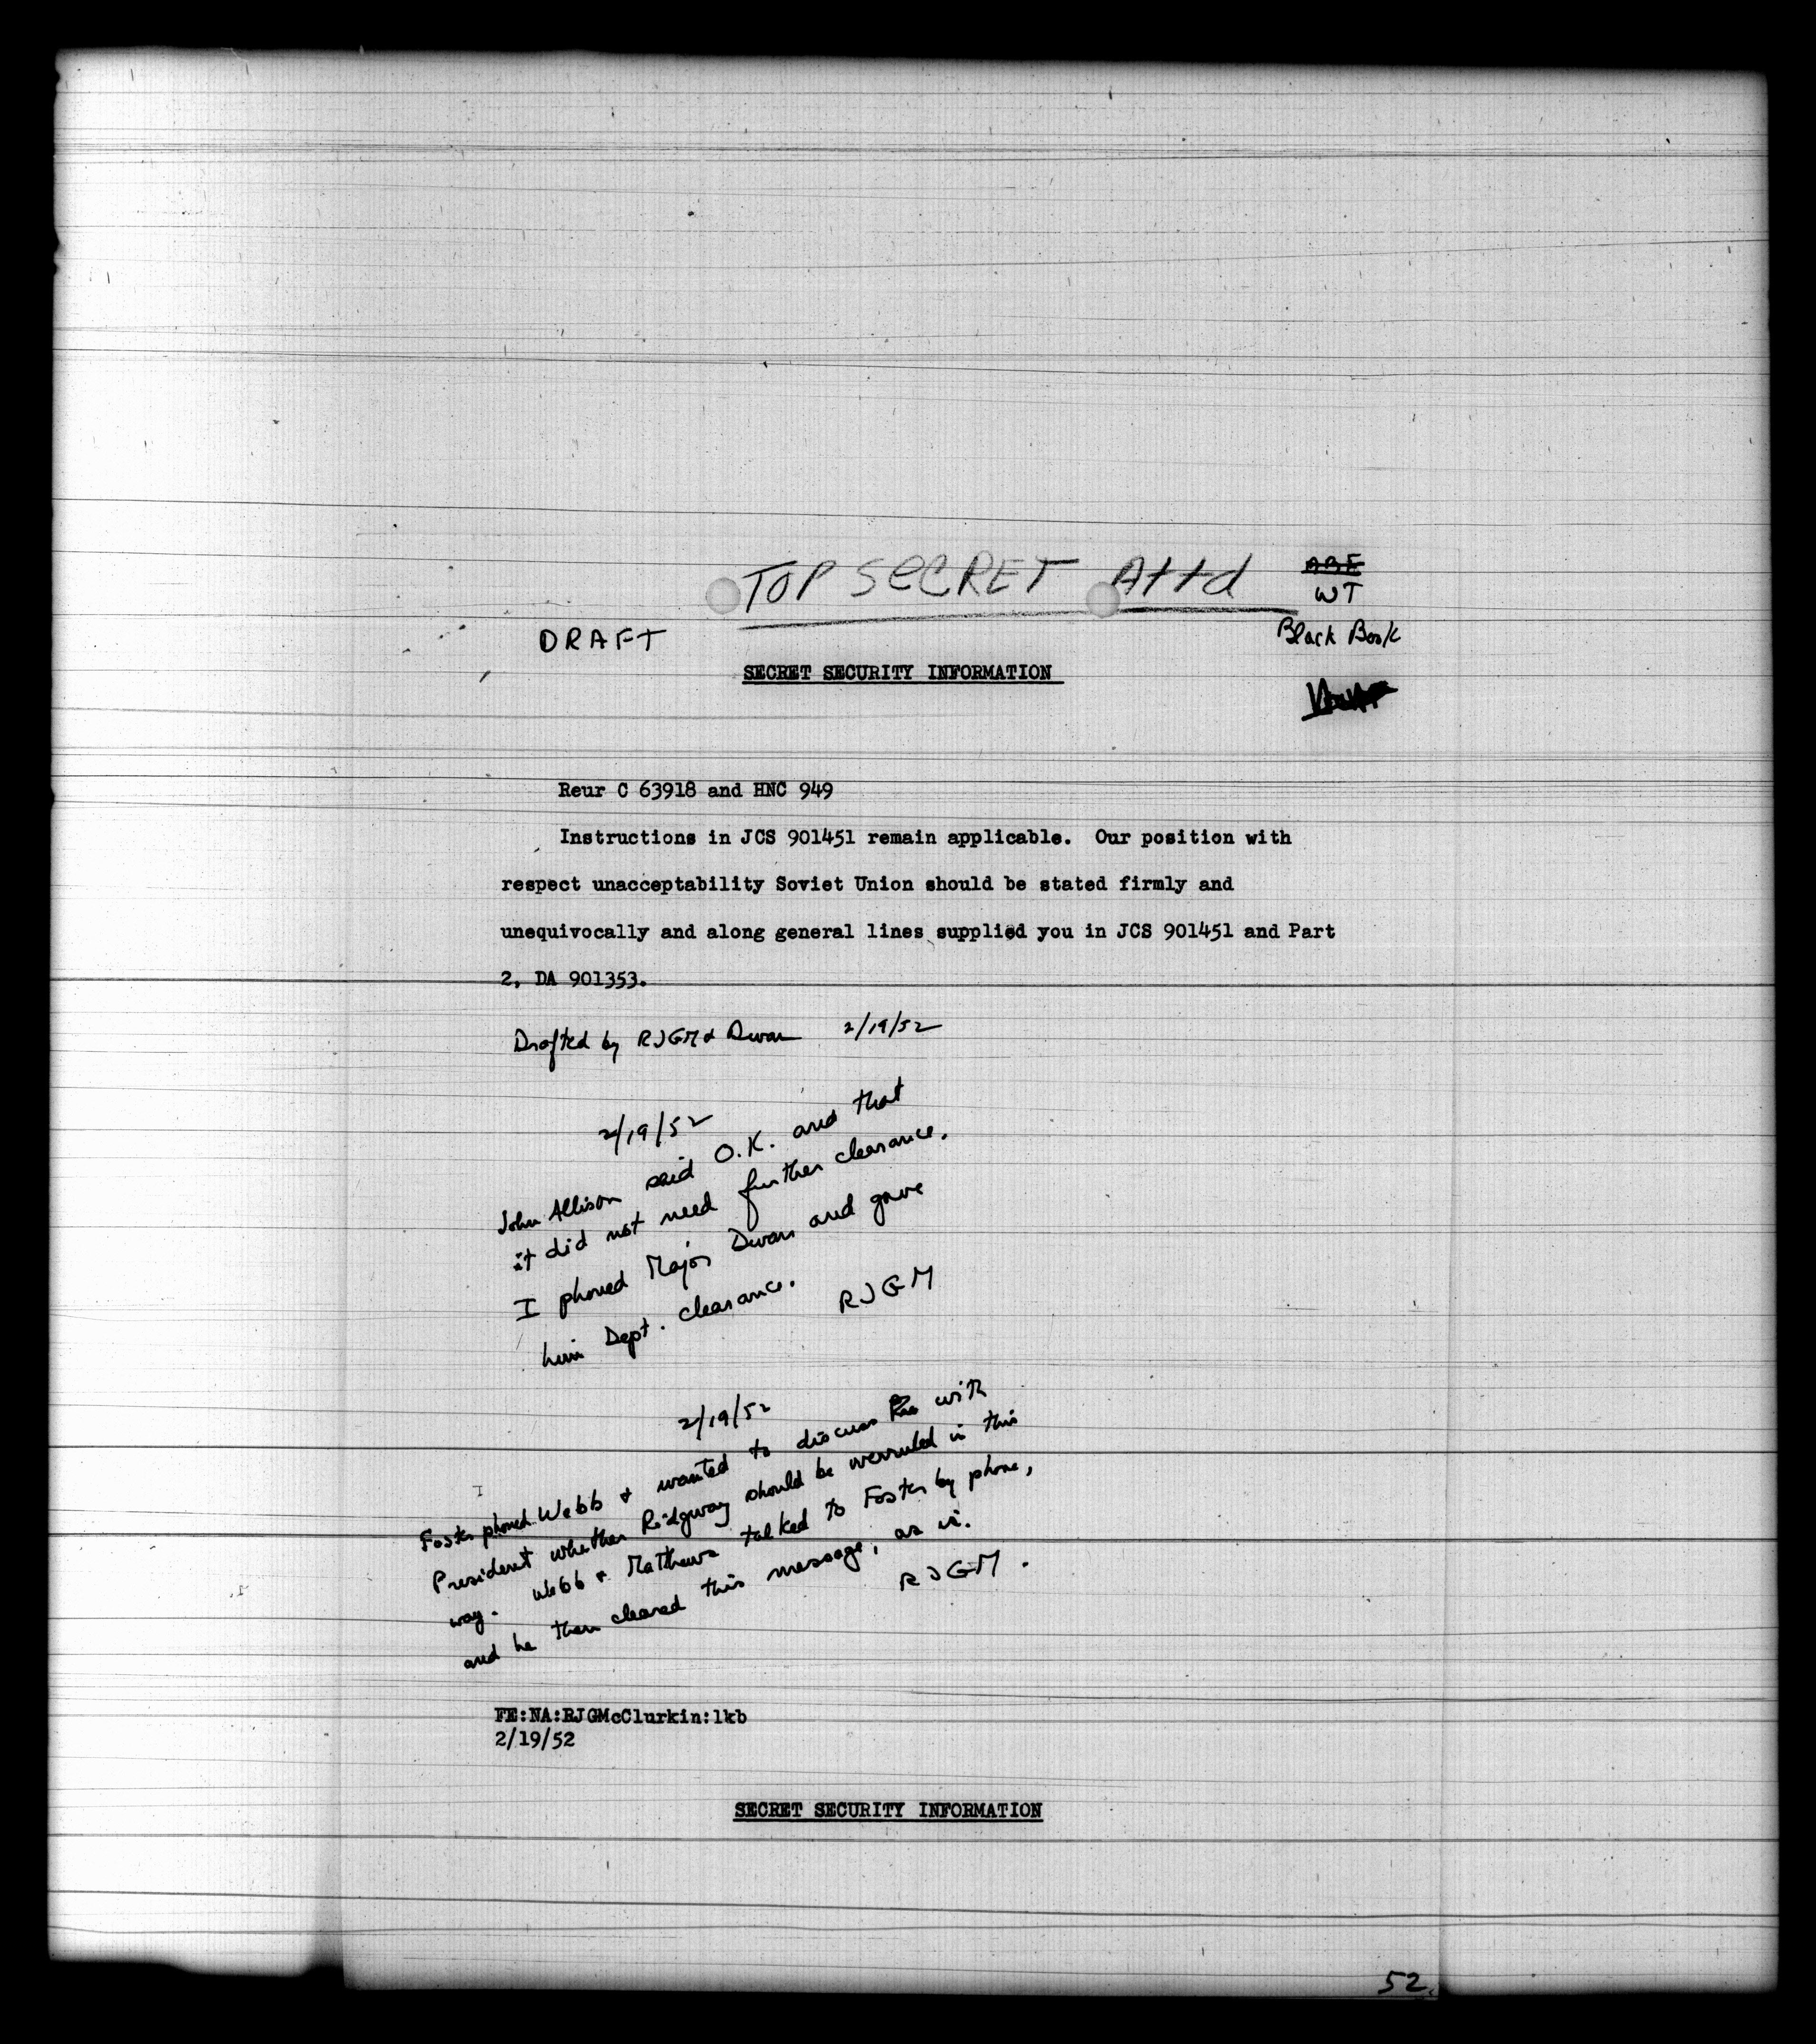 TOP SECRET Attd
ABE
WT
Black Book
DRAFT
SECRET SECURITY INFORMATION
Reur C 63918 and HNC 949
Instructions in JCS 901451 remain applicable. Our position with
respect unacceptability Soviet Union should be stated firmly and
unequivocally and along general lines supplied you in JCS 901451 and Part
2, DA 901353.
Drafted by RJGM & Dwan 2/19/52
2/19/52
John Allison said O.K. and that
it did not need further clearance.
I phoned Major Dwan and gave
him Dept. clearance. RJGM
2/19/52
Foster phoned Webb & wanted to discuss with
President whether Ridgway should be overruled in this
way. Webb & Matthews talked to Foster by phone,
and he then cleared this message, as is.
RJGM.
FE:NA:RJGMcClurkin:lkb
2/19/52
SECRET SECURITY INFORMATION
52